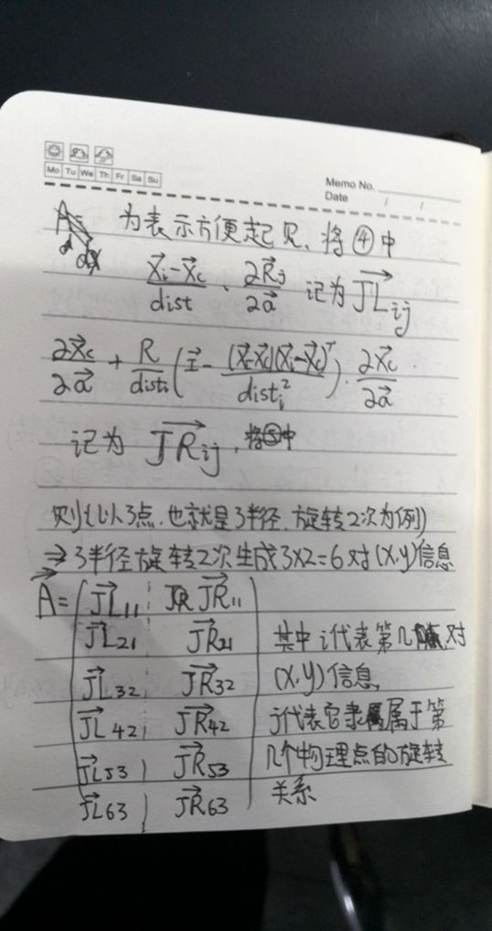 Mo Tu We Th Fr Sa Su
Memo No.
Date / /
为表示方便起见, 将④中
(x⃗i-x⃗c)/dist · ∂R⃗j/∂a⃗ 记为 JL⃗ij
∂x⃗c/∂a⃗ + R/disti (I⃗ - (x⃗i-x⃗c)(x⃗i-x⃗c)ᵀ/disti²) · ∂x⃗c/∂a⃗
记为 JR⃗ij,
则(以3点,也就是3半径,旋转2次为例)
⇒ 3半径旋转2次生成3×2=6对(x,y)信息
A⃗= JL⃗11 JR JR⃗11
JL⃗21 JR⃗21 其中i代表第几对
JL⃗32 JR⃗32 (x,y)信息,
JL⃗42 JR⃗42 j代表它隶属于第
JL⃗53 JR⃗53 几个物理点的旋转
JL⃗63 JR⃗63 关系